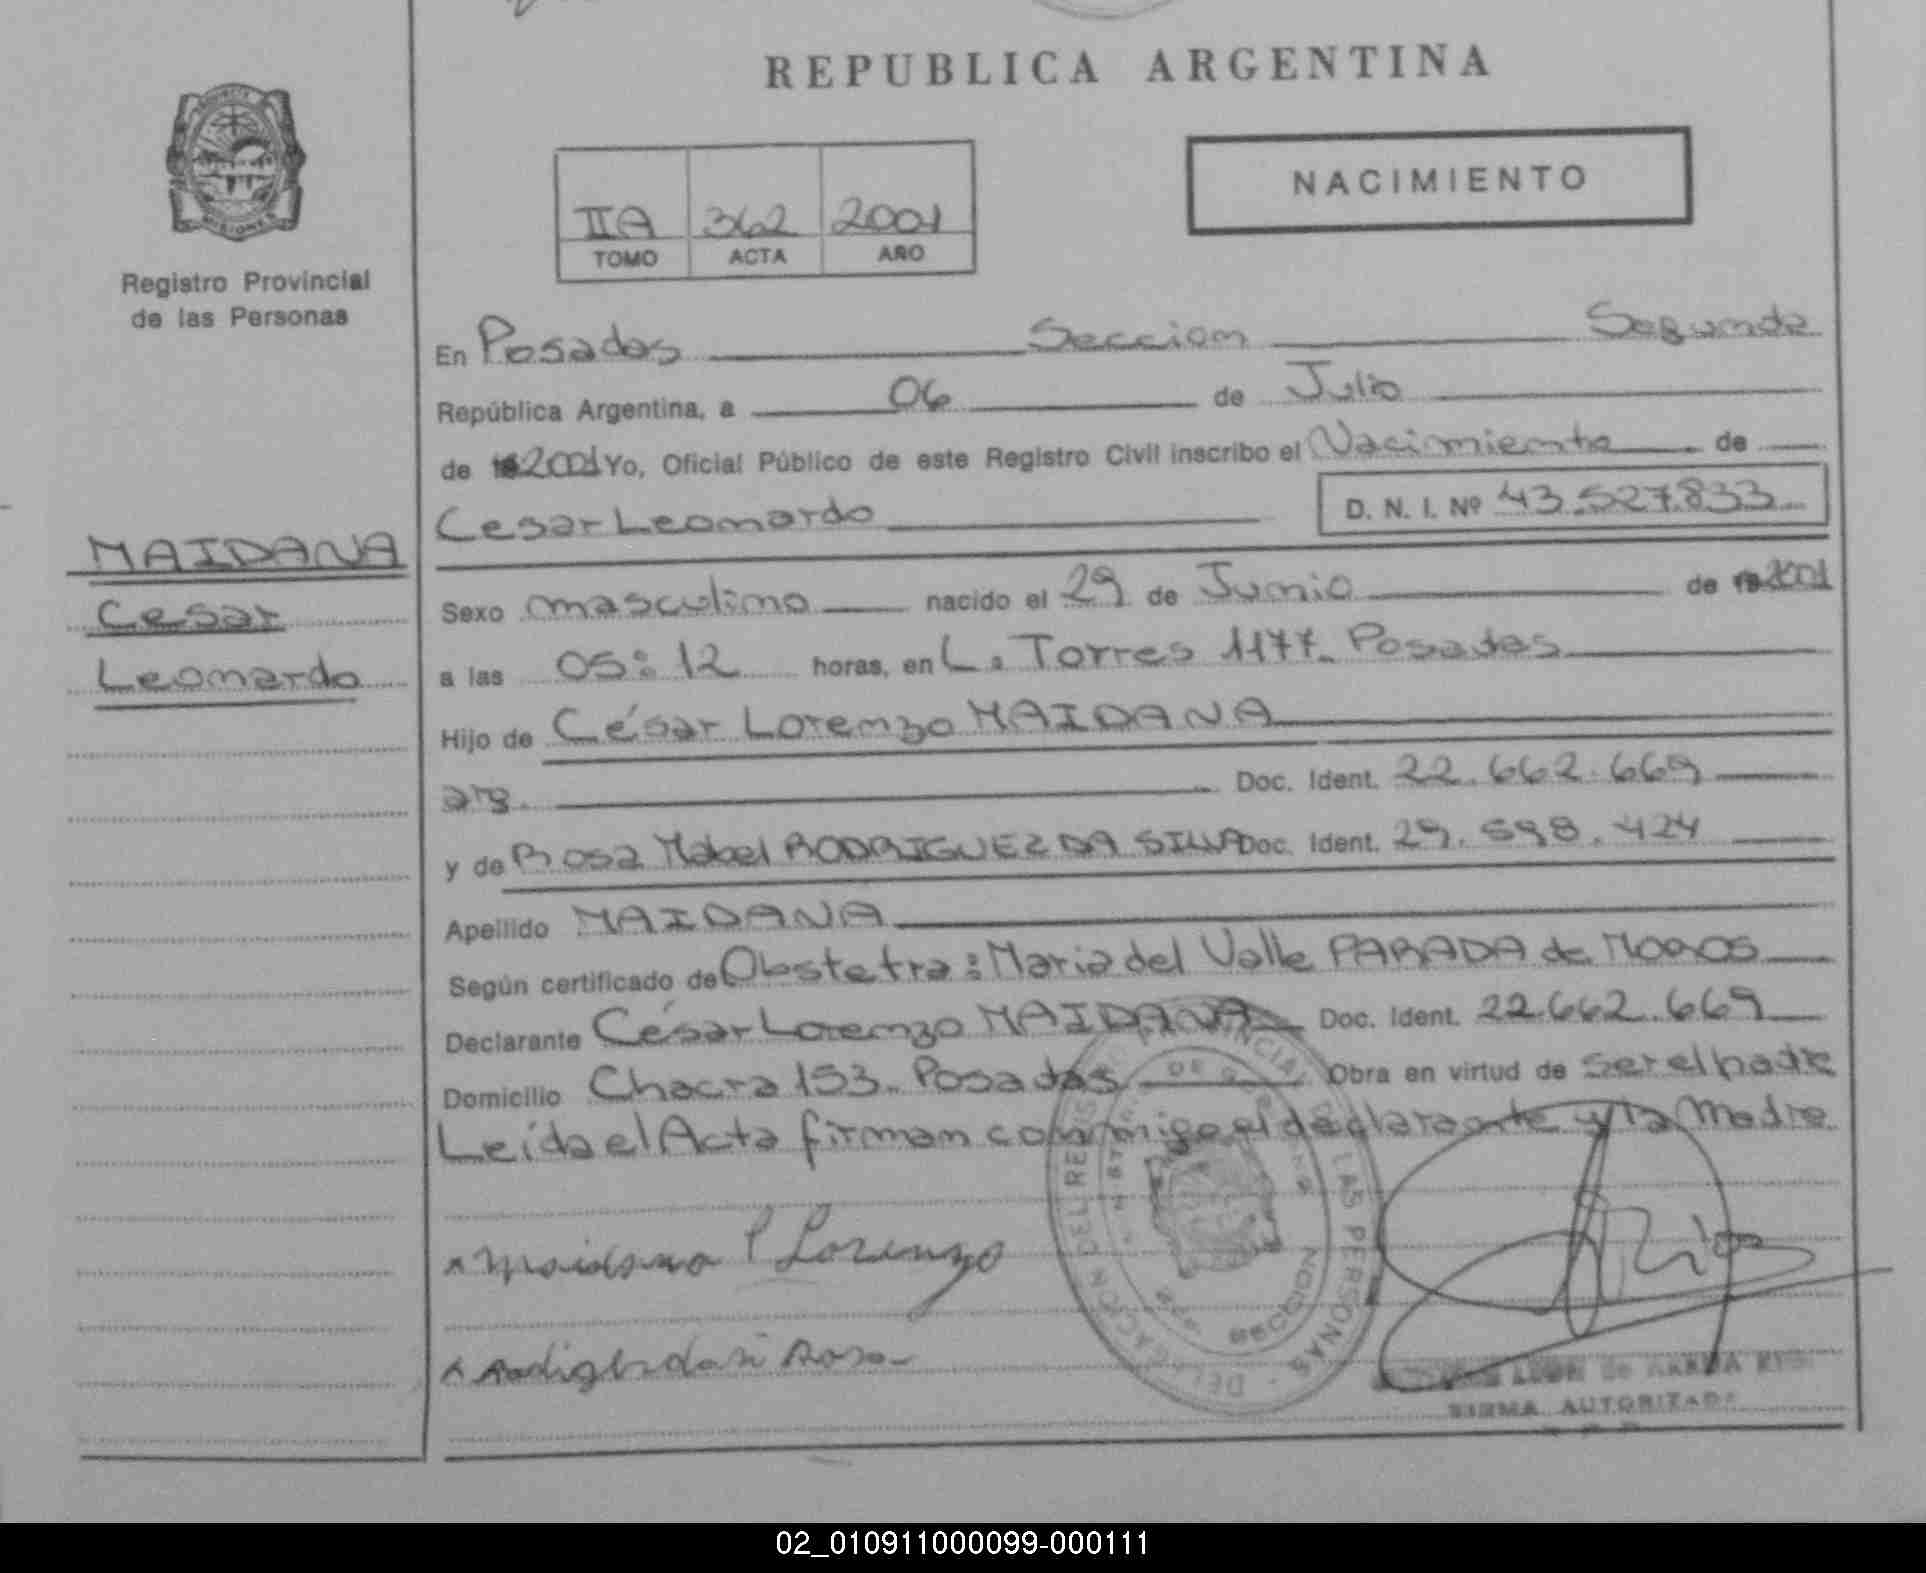 REPUBLICA ARGENTINA
NACIMIENTO
IIA 362 2001
TOMO ACTA AÑO
Registro Provincial
de las Personas
MAIDANA
Cesar
Leonardo
En Posadas Seccion Segunda
República Argentina, a 06 de Julio
de 2001 Yo, Oficial Público de este Registro Civil inscribo el Nacimiento de
Cesar Leonardo D. N. I. Nº 43.527.833
Sexo masculino nacido el 29 de Junio de 2001
a las 05:12 horas, en L. Torres 1177. Posadas
Hijo de César Lorenzo MAIDANA
arg. Doc. Ident. 22.662.669
y de Rosa Mabel RODRIGUEZ DA SILVA Doc. Ident. 29.598.424
Apellido MAIDANA
Según certificado de Obstetra: Maria del Valle PARADA de MOROS
Declarante César Lorenzo MAIDANA Doc. Ident. 22.662.669
Domicilio Chacra 153. Posadas Obra en virtud de ser el padre
Leída el Acta firman conmigo el declarante y la Madre.
DELEGACION DEL REGISTRO PROVINCIAL DE LAS PERSONAS
SECCION
Maidana C Lorenzo
Rosa
Rios
FIRMA AUTORIZADA
02_010911000099-000111